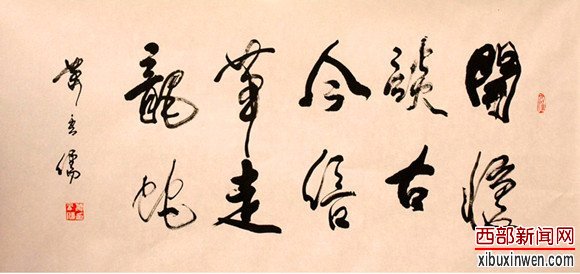 開懷
談古
今信
筆走
龍蛇
西部新闻网
xibuxinwen.com